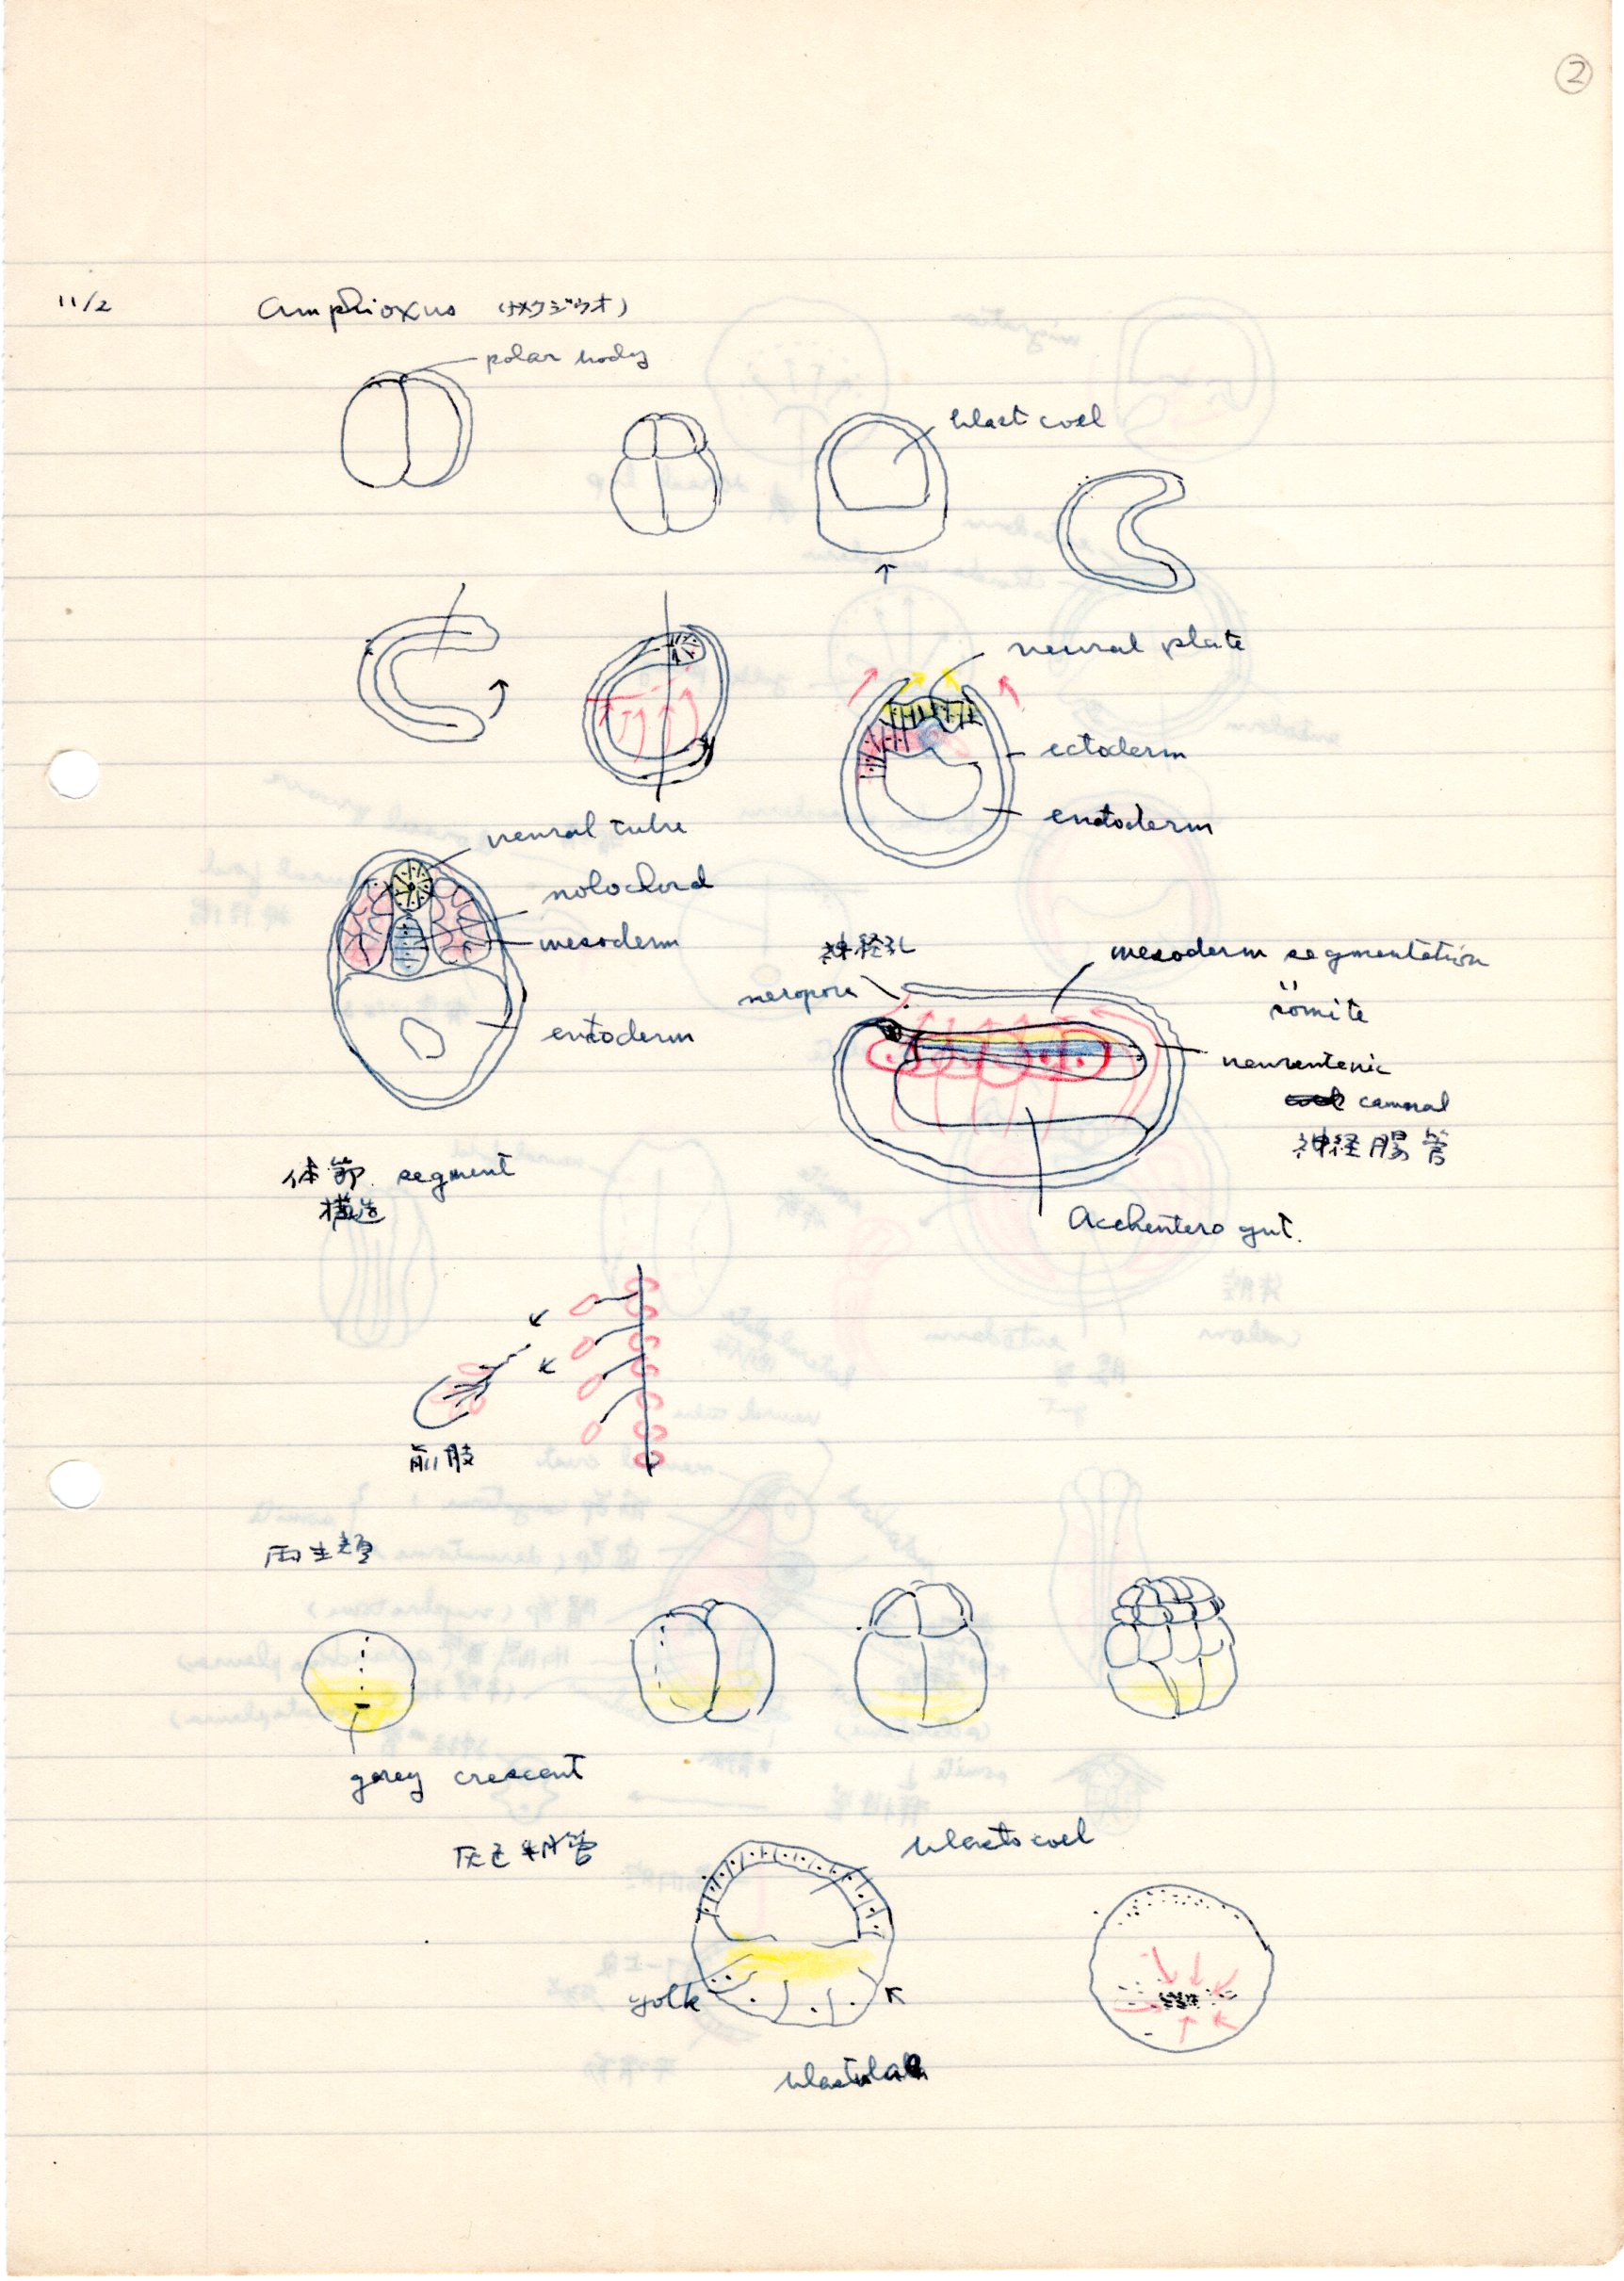 ②
11/2
Amphioxus (ナメクジウオ)
polar body
blast coel
neural plate
ectoderm
entoderm
neural tube
notochord
mesoderm
entoderm
神経孔
neropore
mesoderm segmentation
somite
neurentenic
cannal
神経腸管
体節 segment
構造
Acchentero gut.
前肢
両生類
grey crescent
灰色
blastocoel
yolk